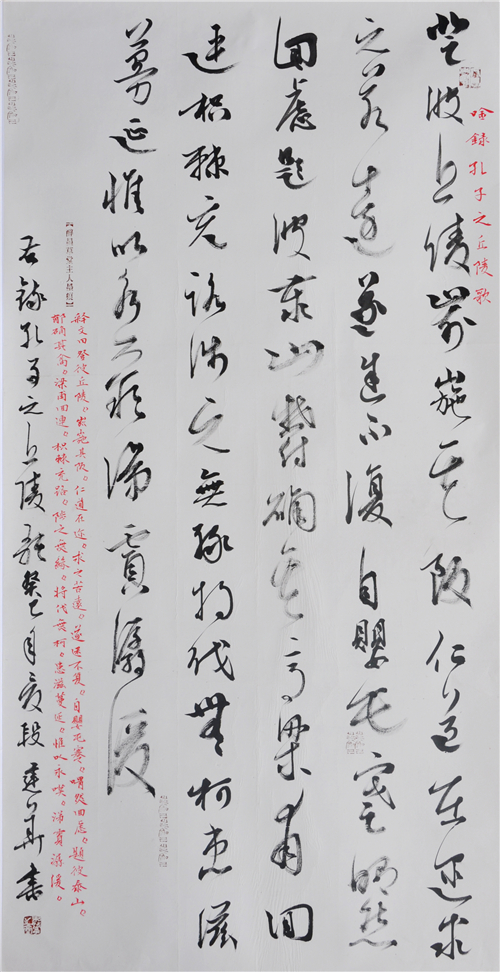 吟錄孔子之丘陵歌
登彼丘陵峛崺其阪仁道在迩求
之若遠遂迷不復自嬰屯蹇喟然
回慮題彼泰山鬱確其高梁甫回
連枳棘充路陟之無緣將伐無柯患滋
蔓延惟以永歎涕霣潺湲
釋文曰登彼丘陵。峛崺其阪。仁道在迩。求之若遠。遂迷不復。自嬰屯蹇。喟然回慮。題彼泰山。
郁确其高。梁甫回連。枳棘充路。陟之無緣。将伐無柯。患滋蔓延。惟以永嘆。涕霣潺湲。
右錄孔子之丘陵歌癸巳月夏段建華書